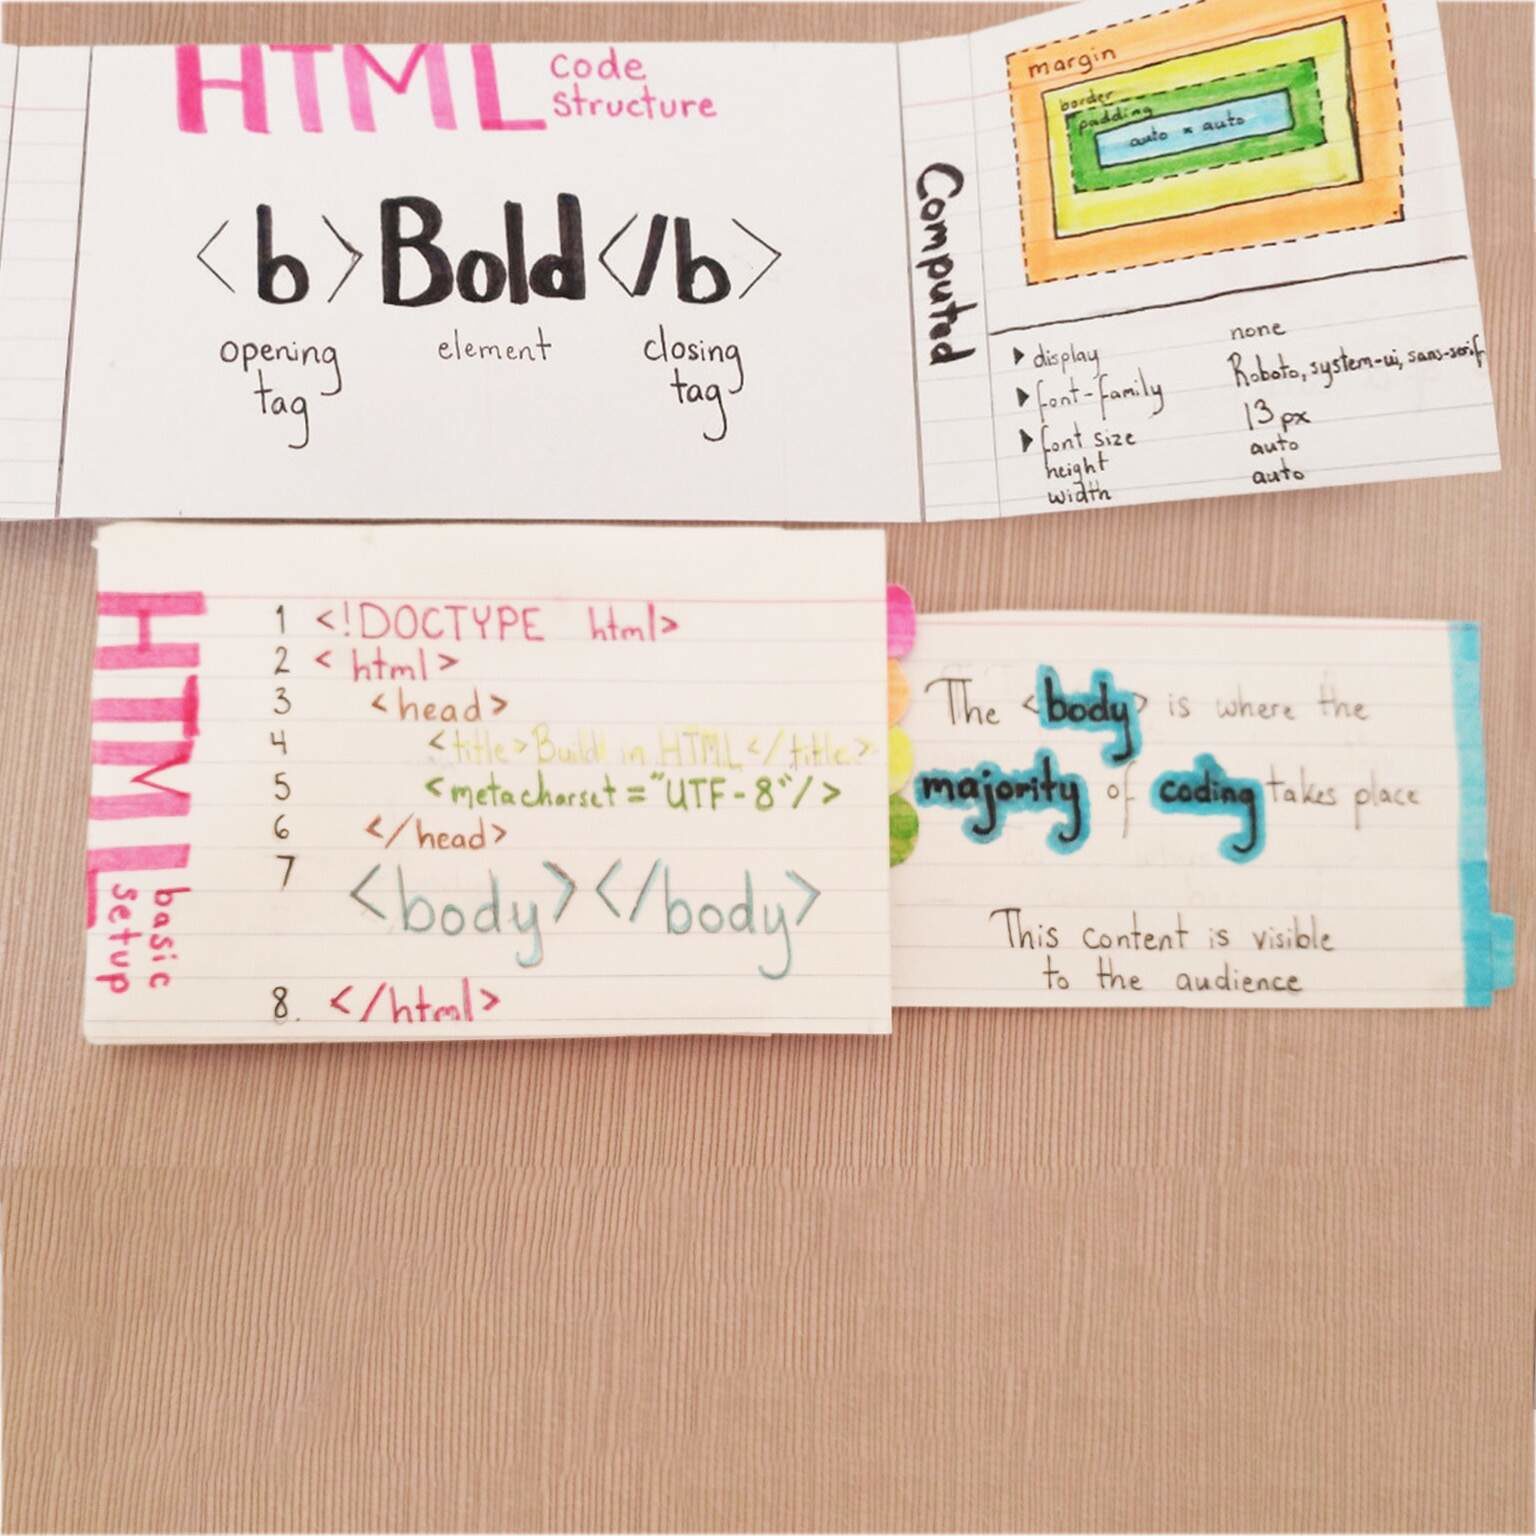 HTML code
structure
<b>Bold</b>
opening element closing
tag tag
Computed
margin
border
padding
auto × auto
▶ display none
▶ font-family Roboto, system-ui, sans-serif
▶ font size 13px
height auto
width auto
HTML
basic
setup
1 <!DOCTYPE html>
2 < html>
3 <head>
4 <title>Build in HTML</title>
5 <metacharset="UTF-8"/>
6 </head>
7 <body></body>
8. </html>
The <body> is where the
majority of coding takes place
This content is visible
to the audience